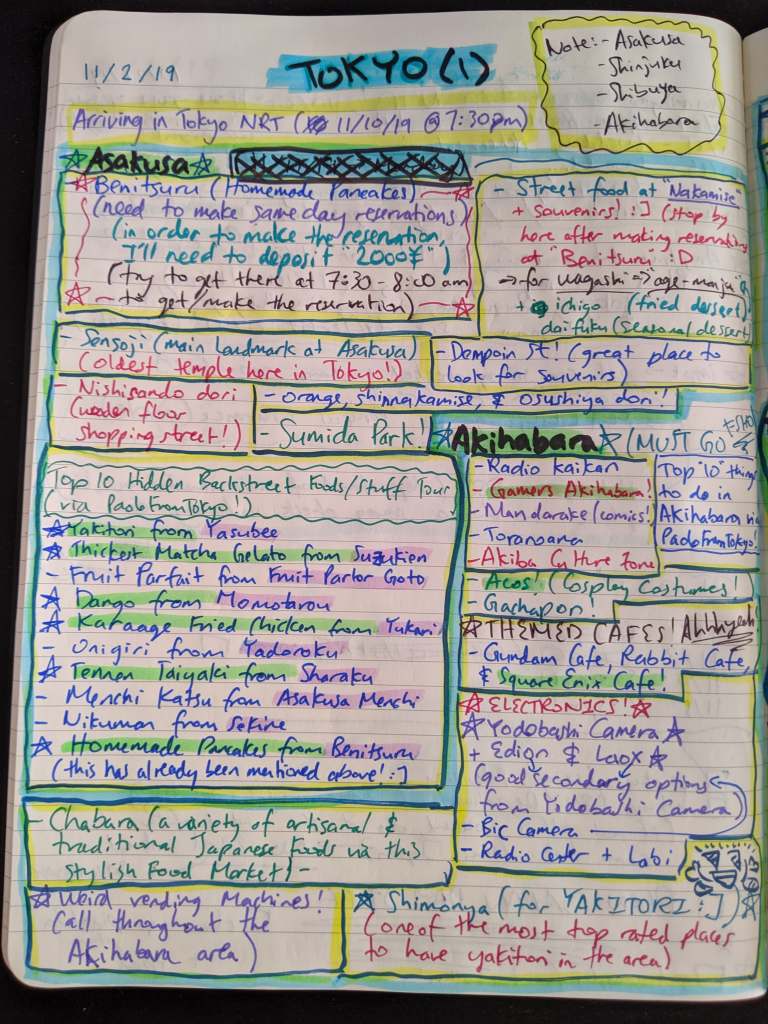 11/2/19
TOKYO (1)
Note: - Asakusa
- Shinjuku
- Shibuya
- Akihabara
Arriving in Tokyo NRT ( 11/10/19 @ 7:30pm)
Asakusa
Benitsuru (Homemade Pancakes)
(need to make same day reservations)
(in order to make the reservation,
I'll need to deposit "2000¥")
(try to get there at 7:30 - 8:00 am
to get/make the reservation)
- Street food at "Nakamise"
+ souvenirs! :] (stop by
here after making reservation
at "Benitsuru" :D
⇒ for wagashi ⇒ "age-manju"
+ ichigo (fried dessert)
daifuku (seasonal dessert
- Sensoji (main landmark at Asakusa)
(oldest temple here in Tokyo!)
- Denpoin St! (great place to
look for souvenirs)
- Nishisando dori
(wooden floor
shopping street!)
- Orange, shinnakamise, & Osushiya dori!
- Sumida Park!
Akihabara (MUST GO
Top 10 Hidden Backstreet Foods/Stuff Tour
(via PaoloFromTokyo!)
Yakitori from Yasubee
Thickest Matcha Gelato from Suzukien
- Fruit Parfait from Fruit Parlor Goto
Dango from Momotarou
Karaage Fried Chicken from Yukari
- Onigiri from Yadoroku
Tennen Taiyaki from Sharaku
- Menchi Katsu from Asakusa Menchi
- Nikuman from Sekine
Homemade Pancakes from Benitsuru
(this has already been mentioned above! :]
- Radio Kaikan
- Gamers Akihabara!
- Mandarake (comics!)
- Toranoana
- Akiba Culture Zone
- Acos (Cosplay Costumes!)
- Gachapon!
Top "10" things
to do in
Akihabara via
PaoloFromTokyo!
THEMED CAFES! Ahhhyeah!
- Gundam Cafe, Rabbit Cafe,
& Square Enix Cafe!
ELECTRONICS!
Yodobashi Camera
+ Edion & Laox
(good secondary options
from Yidobashi Camera)
- Bic Camera
- Radio Center + Labi
- Chabara (a variety of artisanal &
traditional Japanese foods via this
stylish Food Market) -
Weird vending Machines!
(all throughout the
Akihabara area)
Shimonya (for YAKITORI :])
(one of the most top rated places
to have yakitori in the area)